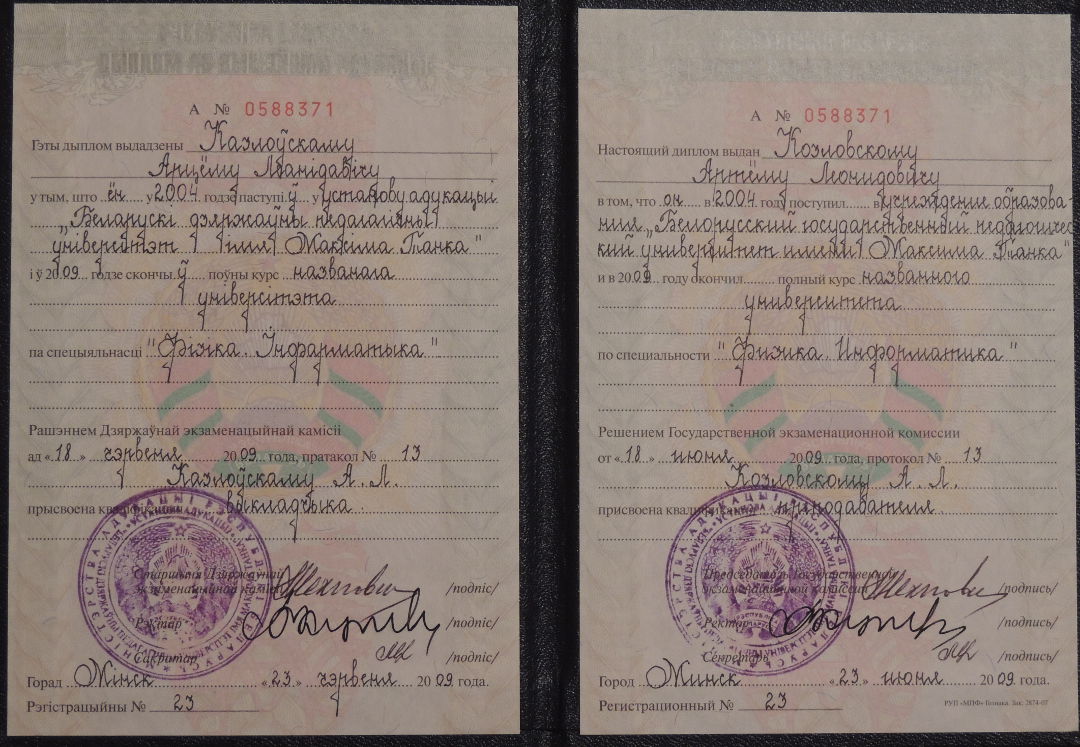 А № 0588371
Гэты дыплом выдадзены Казлоўскаму
Арцёму Леанідавічу
у тым, што ён у 2004 годзе паступіў у установу адукацыі
„Беларускі дзяржаўны педагагічны
універсітэт імя Максіма Танка"
і ў 2009 годзе скончыў поўны курс названага
універсітэта
па спецыяльнасці "Фізіка. Інфарматыка"
Рашэннем Дзяржаўнай экзаменацыйнай камісіі
ад «18» чэрвеня 2009 года, пратакол № 13
Казлоўскаму А. Л.
прысвоена кваліфікацыя выкладчыка
Старшыня Дзяржаўнай
экзаменацыйнай камісіі /подпіс/
Рэктар /подпіс/
Сакратар /подпіс/
Горад Мінск «23» чэрвеня 2009 года.
Рэгістрацыйны № 23
А № 0588371
Настоящий диплом выдан Козловскому
Артёму Леонидовичу
в том, что он в 2004 году поступил в учреждение образова-
ния „Белорусский государственный педагогичес-
кий университет имени Максима Танка"
и в 2009 году окончил полный курс названного
университета
по специальности "Физика. Информатика"
Решением Государственной экзаменационной комиссии
от «18» июня 2009 года, протокол № 13
Козловскому А. Л.
присвоена квалификация преподавателя
Председатель Государственной
экзаменационной комиссии /подпись/
Ректор /подпись/
Секретарь /подпись/
Город Минск «23» июня 2009 года.
Регистрационный № 23
РУП «МПФ» Гознака. Зак. 2874-07